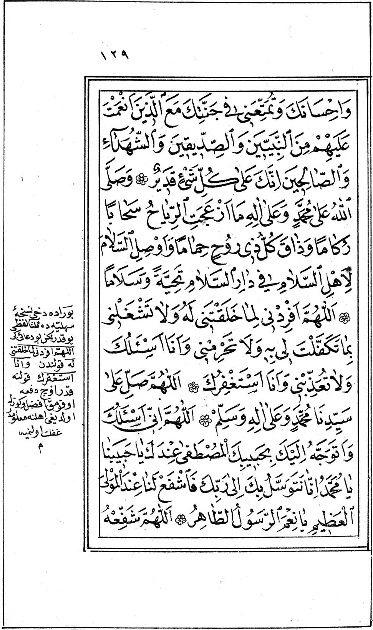 ١٢٩
وَاِحْسَانِكَ وَتُمَتِّعَنِى فِى جَنَّتِكَ مَعَ الَّذِينَ اَنْعَمْتَ
عَلَيْهِمْ مِنَ النَّبِيِّينَ وَالصِّدِّيقِينَ وَالشُّهَدَآءِ
وَالصَّالِحِينَ اِنَّكَ عَلٰى كُلِّ شَىْءٍ قَدِيرٌ ۞ وَصَلَّى
اللهُ عَلٰى مُحَمَّدٍ وَعَلٰى اٰلِهِ مَا اَزْعَجَتِ الرِّيَاحُ سَحَابًا
رُكَامًا وَذَاقَ كُلُّ ذِى رُوحٍ حِمَامًا وَاَوْصِلِ السَّلَامَ
لِاَهْلِ السَّلَامِ فِى دَارِ السَّلَامِ تَحِيَّةً وَسَلَامًا
۞ اَللّٰهُمَّ اَفْرِدْنِى لِمَا خَلَقْتَنِى لَهُ وَلَا تَشْغَلْنِى
بِمَا تَكَفَّلْتَ لِى بِهِ وَلَا تَحْرِمْنِى وَاَنَا اَسْئَلُكَ
وَلَا تُعَذِّبْنِى وَاَنَا اَسْتَغْفِرُكَ ۞ اَللّٰهُمَّ صَلِّ عَلٰى
سَيِّدِنَا مُحَمَّدٍ وَعَلٰى اٰلِهِ وَسَلِّمْ ۞ اَللّٰهُمَّ اِنِّى اَسْئَلُكَ
وَاَتَوَجَّهُ اِلَيْكَ بِحَبِيبِكَ الْمُصْطَفٰى عِنْدَكَ يَا حَبِيبَنَا
يَا مُحَمَّدُ اِنَّا نَتَوَسَّلُ بِكَ اِلٰى رَبِّكَ فَاشْفَعْ لَنَا عِنْدَ الْمَوْلَى
الْعَظِيمِ يَا نِعْمَ الرَّسُولُ الطَّاهِرُ ۞ اَللّٰهُمَّ شَفِّعْهُ
بوراده دخى نسخهٔ
سهليه ده
اللهم افردنى لما خلقتنى
له قولندن وانا
استغفرك قولنه
قدر اوچ دفعه